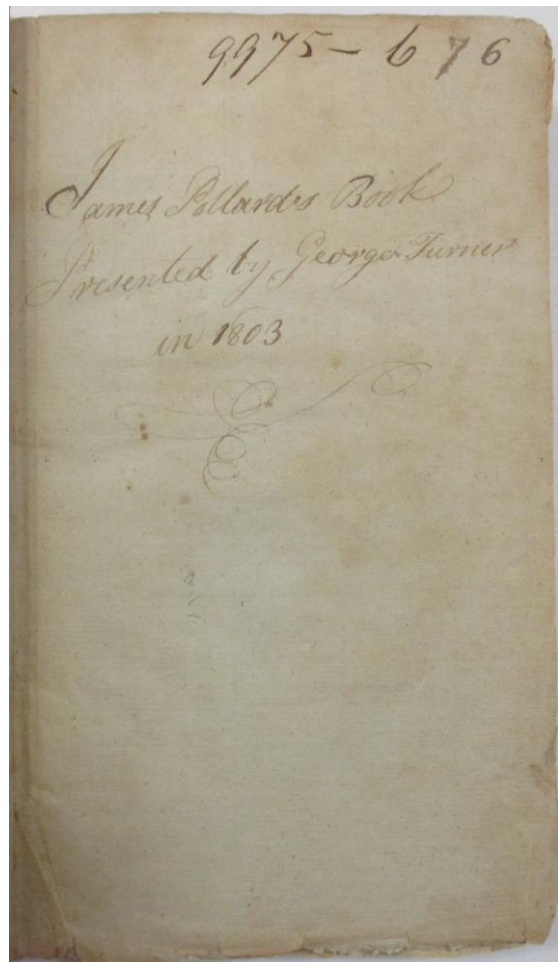 9975 - 676
James Pollard's Book
Presented by George Turner
in 1803